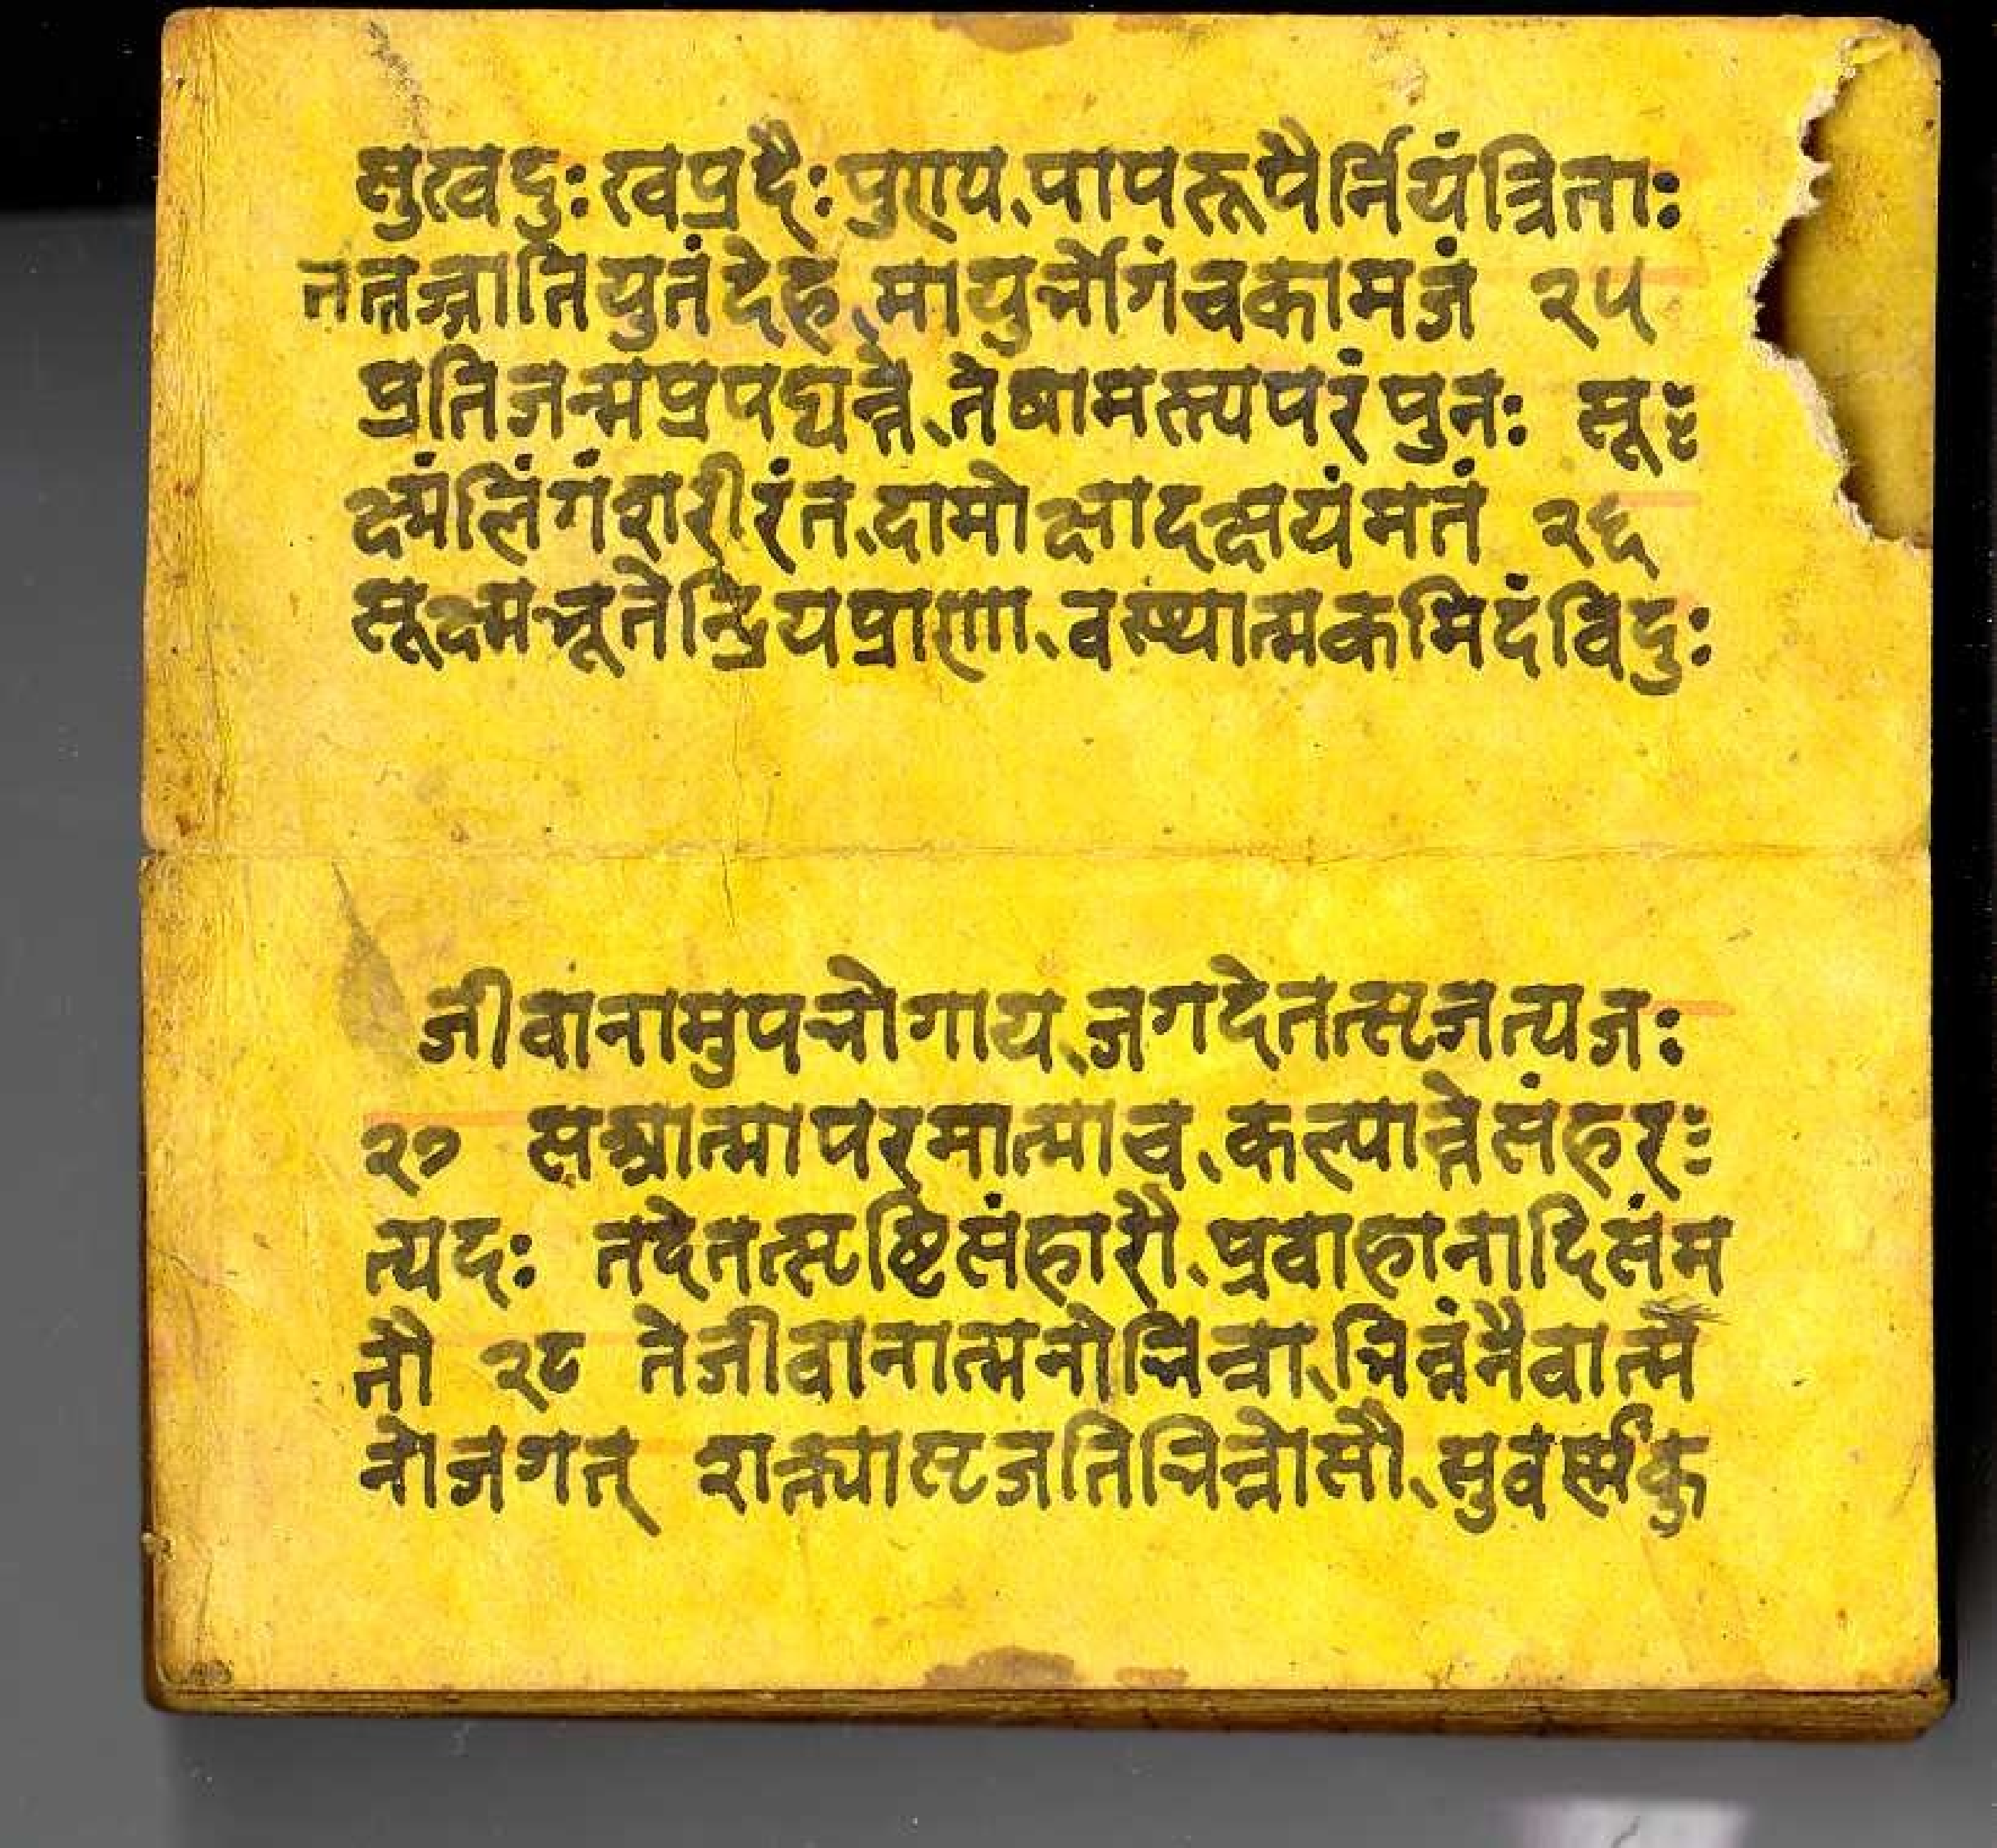 सुखदुःखप्रदैः पुण्य पापरूपैर्नियंत्रिताः
तत्तज्जातियुतंदेह मायुर्भोगंचकामजं २५
प्रतिजन्मप्रपद्यन्ते तेषामस्त्यपरंपुनः सू
क्ष्मंलिंगंशरीरंत दामोक्षादक्षयंमतं २६
सूक्ष्मभूतेन्द्रियप्राणा वस्थात्मकमिदंविदुः
जीवानामुपभोगाय जगदेतत्सृजत्यजः
२७ सश्चात्मापरमात्माच कल्पान्तेसंहर
त्यदः तदेतत्सृष्टिसंहारौ प्रवाहानादिसंम
तौ २८ तेजीवानात्मनोभिन्ना भिन्नंनैवात्म
नोजगत् शक्त्यासृजतिभिन्नोसौ सुवर्णकु